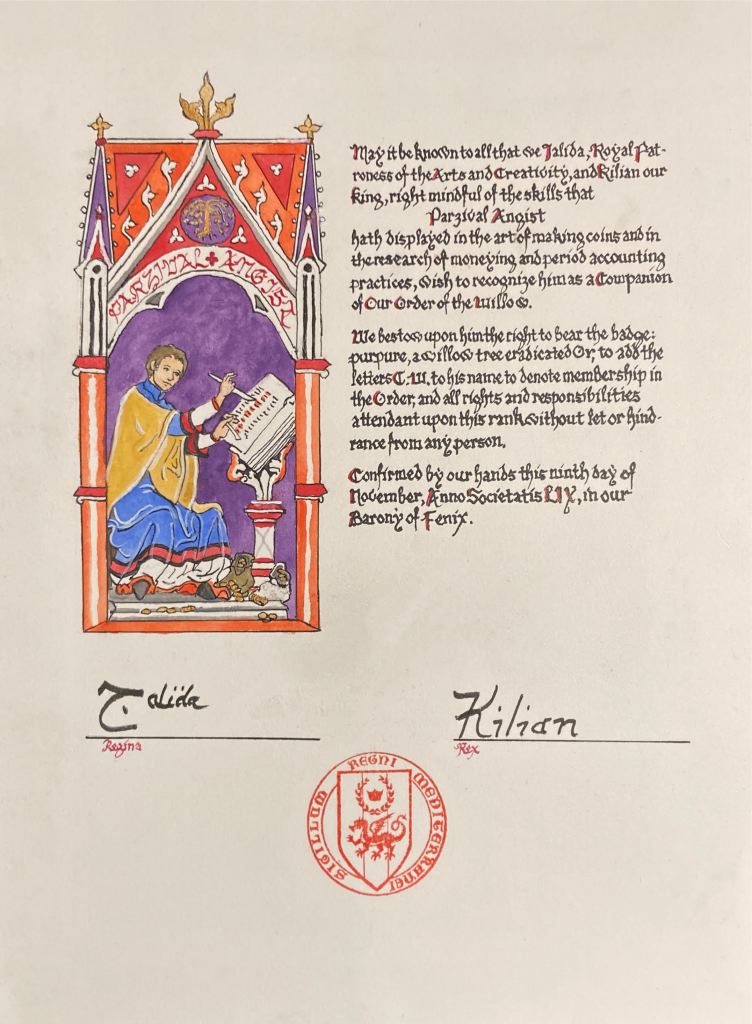 PARZIVAL ANGIST
May it be known to all that we Jalida, Royal Pat-
roness of the Arts and Creativity, and Kilian our
King, right mindful of the skills that
Parzival Angist
hath displayed in the art of making coins and in
the research of moneying and period accounting
practices, wish to recognize him as a Companion
of Our Order of the Willow.
We bestow upon him the right to bear the badge:
purpure, a willow tree eradicated Or, to add the
letters C.W. to his name to denote membership in
the Order, and all rights and responsibilities
attendant upon this rank without let or hind-
rance from any person.
Confirmed by our hands this ninth day of
November, Anno Societatis LIX, in our
Barony of Fenix.
Jalida
Regina
Kilian
Rex
SIGILLUM REGNI MEDITERRANEI